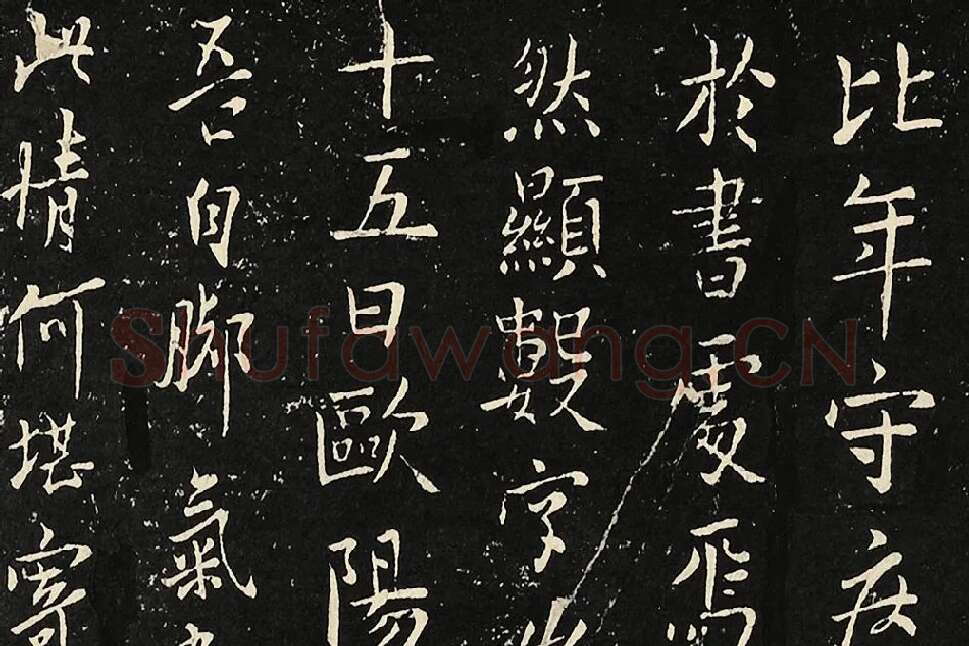 比年守疾
於書處
然顯數字
十五日歐陽
吾自脚氣
此情何堪寄
Shufawang.CN